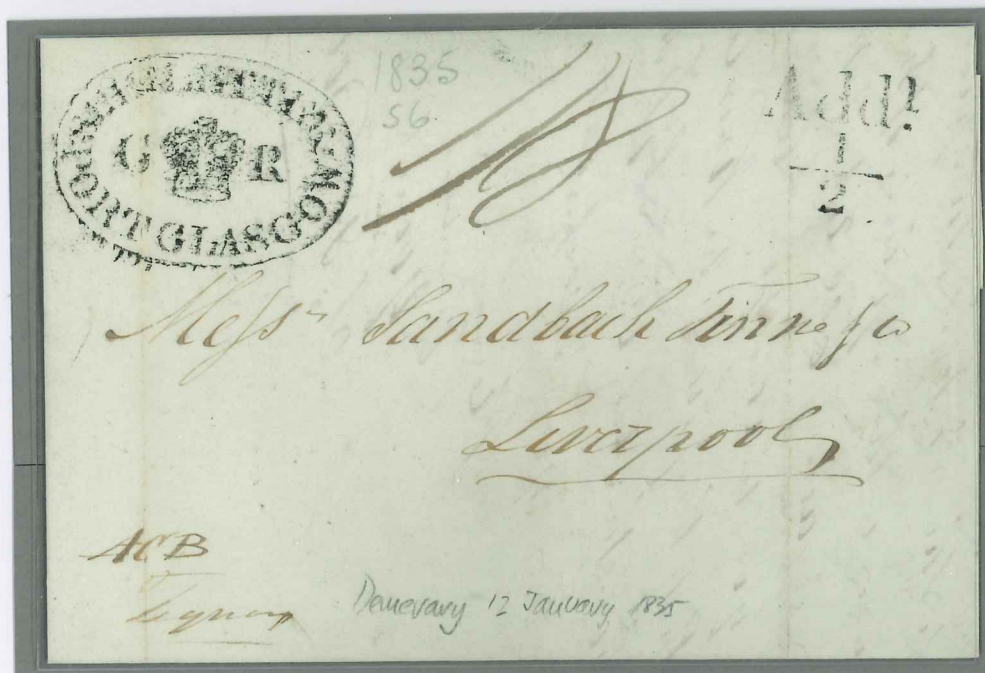 SHIP LETTER
G R
PORT GLASGOW
1835
56
1/8
Addl
1
2
Messrs Sandbach Tinne & Co
Liverpool
ACB
Demerary 12 January 1835